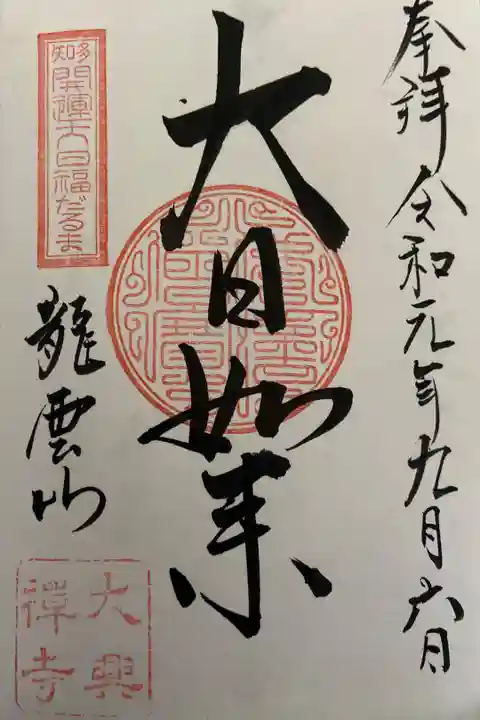 奉拝 令和元年九月六日
大日如来
知多
開運大日福だるま
龍雲山
大興
禅寺